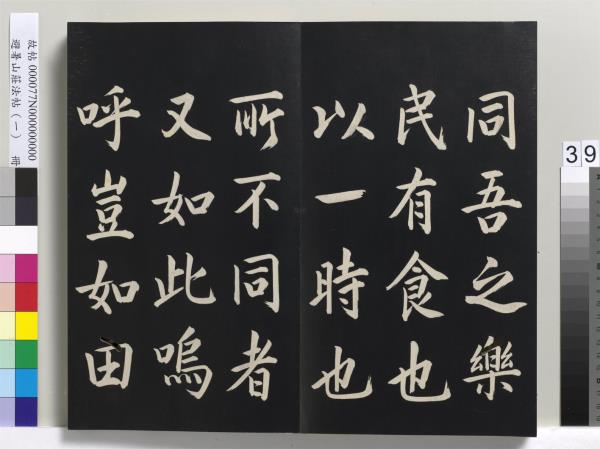 同吾之樂
民有食也
以一時也
所不同者
又如此嗚
呼豈如田
故帖 000077N000000000
避暑山莊法帖（一） 冊
39